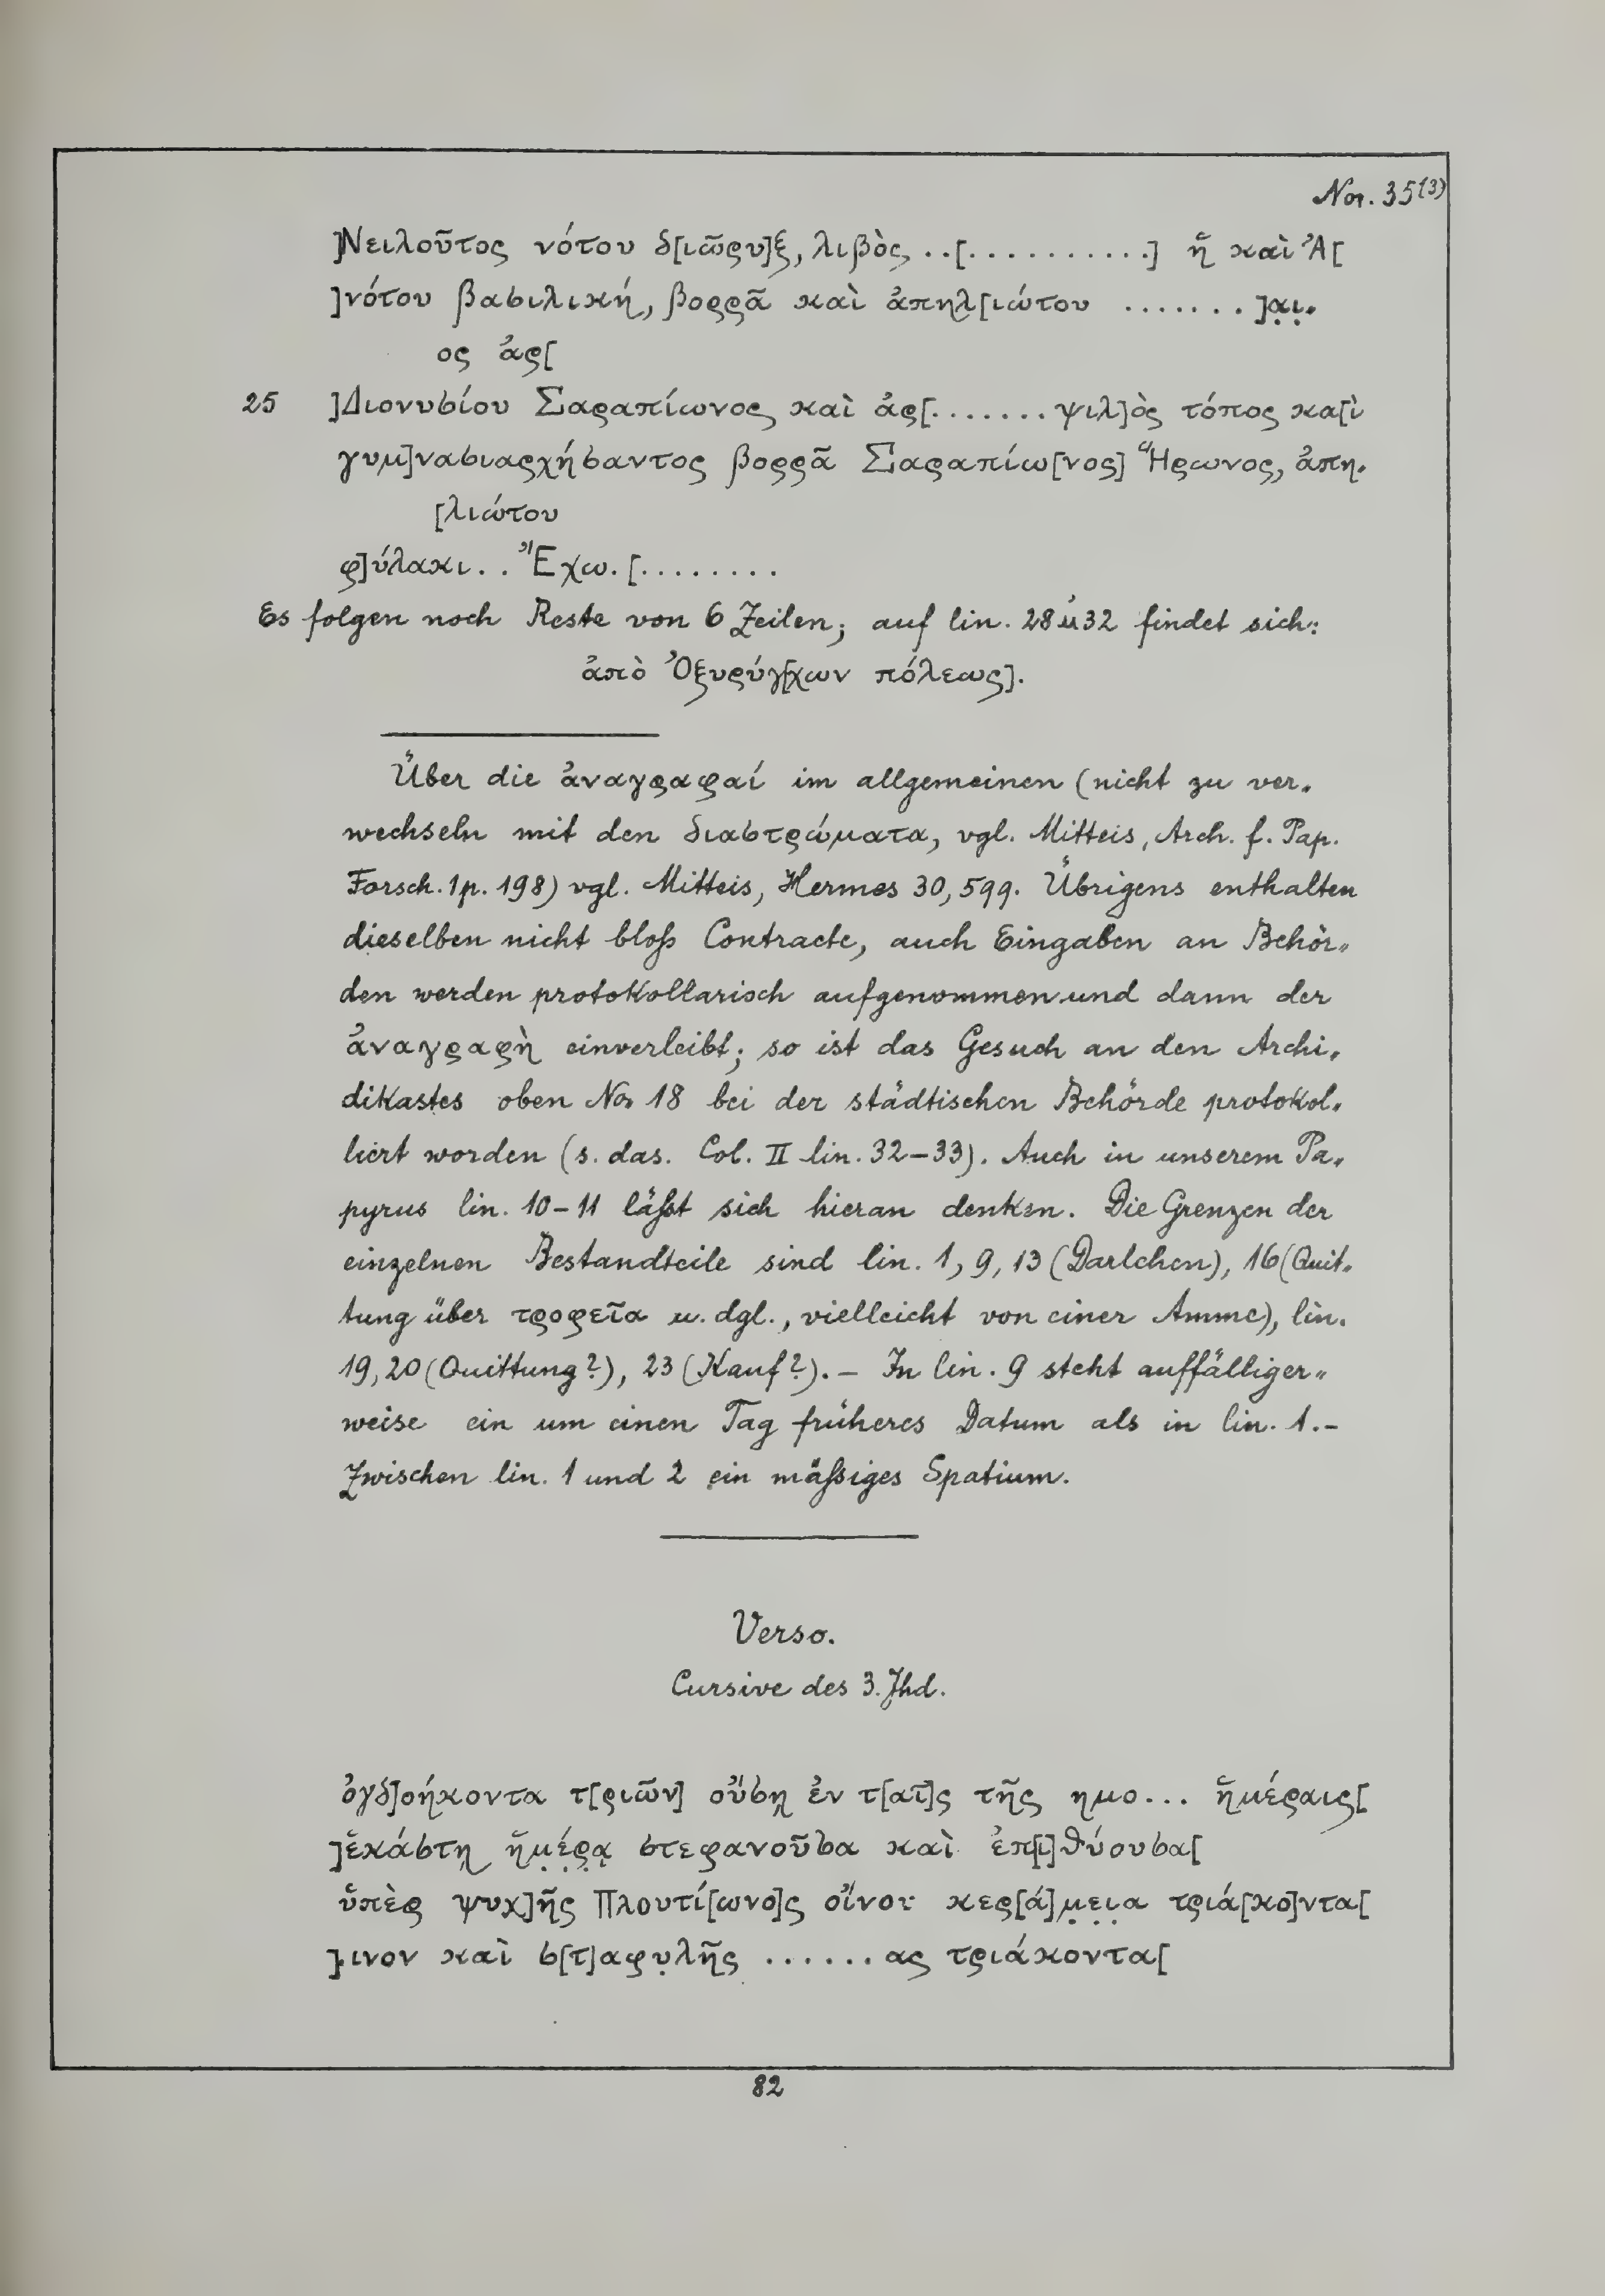 Nor. 35(3)
]Νειλοῦτος νότου δ[ιῶρυ]ξ, λιβὸς ..[..........] ἣ καὶ Ἀ[
]νότου βασιλική, βορρᾶ καὶ ἀπηλ[ιώτου .......]ạι̣.
ος ἀρ[
25 ]Διονυσίου Σαραπίωνος καὶ ἀρ[.......ψιλ]ὸς τόπος κα[ὶ
γυμ]νασιαρχήσαντος βορρᾶ Σαραπίω[νος] Ἥρωνος, ἀπη-
[λιώτου
φ]ύλακι.. Ἔχω.[........
Es folgen noch Reste von 6 Zeilen; auf lin. 28 u 32 findet sich:
ἀπὸ Ὀξυρύγ[χων πόλεως].
Über die ἀναγραφαί im allgemeinen (nicht zu ver-
wechseln mit den διαστρώματα, vgl. Mitteis, Arch. f. Pap.
Forsch. 1 p. 198) vgl. Mitteis, Hermes 30, 599. Übrigens enthalten
dieselben nicht bloß Contracte, auch Eingaben an Behör-
den werden protokollarisch aufgenommen und dann der
ἀναγραφὴ einverleibt; so ist das Gesuch an den Archi-
dikastes oben Nor 18 bei der städtischen Behörde protokol-
liert worden (s. das. Col. II lin. 32–33). Auch in unserem Pa-
pyrus lin. 10–11 läßt sich hieran denken. Die Grenzen der
einzelnen Bestandteile sind lin. 1, 9, 13 (Darlehen), 16 (Quit-
tung über τροφεῖα u. dgl., vielleicht von einer Amme), lin.
19, 20 (Quittung?), 23 (Kauf?). – In lin. 9 steht auffälliger-
weise ein um einen Tag früheres Datum als in lin. 1. –
Zwischen lin. 1 und 2 ein mäßiges Spatium.
Verso.
Cursive des 3. Jhd.
ὀγδ]οήκοντα τ[ριῶν] οὔσῃ ἐν τ[αῖ]ς τῆς ημο... ἡμέραις[
]ἑκάστῃ ἡμ̣έ̣ρ̣ᾳ στεφανοῦσα καὶ ἐπ[ι]θύουσα[
ὑπὲρ ψυχ]ῆς Πλουτί[ωνο]ς οἴνου κερ[ά]μ̣ε̣ι̣α τριά[κο]ντα[
].ινον καὶ σ[τ]αφυ̣λῆς ......ας τριάκοντα[
82